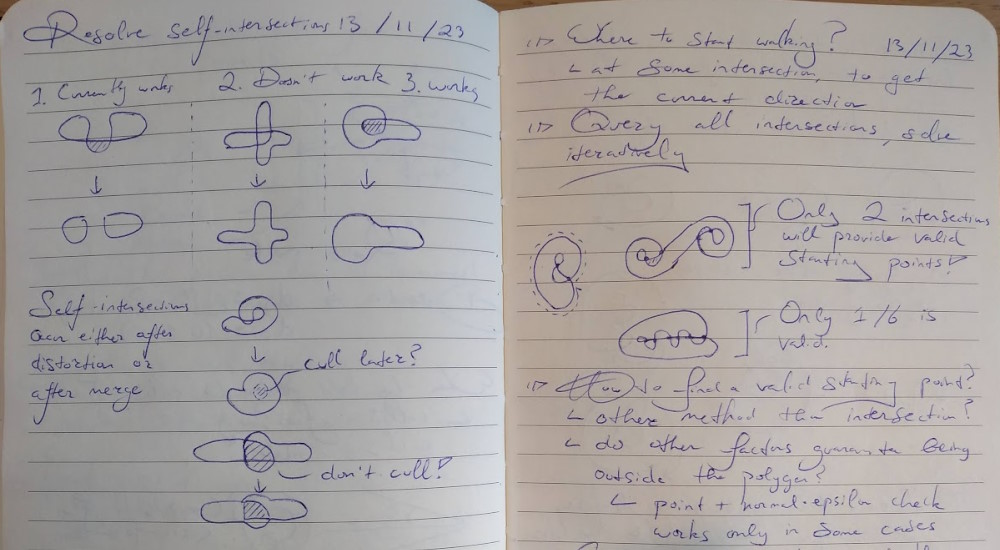 Resolve self-intersections 13/11/23
1. Currently works
2. Doesn't work
3. works
Self-intersections
occur either after
distortion or
after merge
cull later?
don't cull!
Where to start walking? 13/11/23
at some intersection, to get
the current direction
Query all intersections, solve
iteratively
Only 2 intersections
will provide valid
starting points!
Only 1/6 is
valid.
How to find a valid starting point?
other method than intersection?
do other factors guarantee being
outside the polygon?
point + normal·epsilon check
works only in some cases